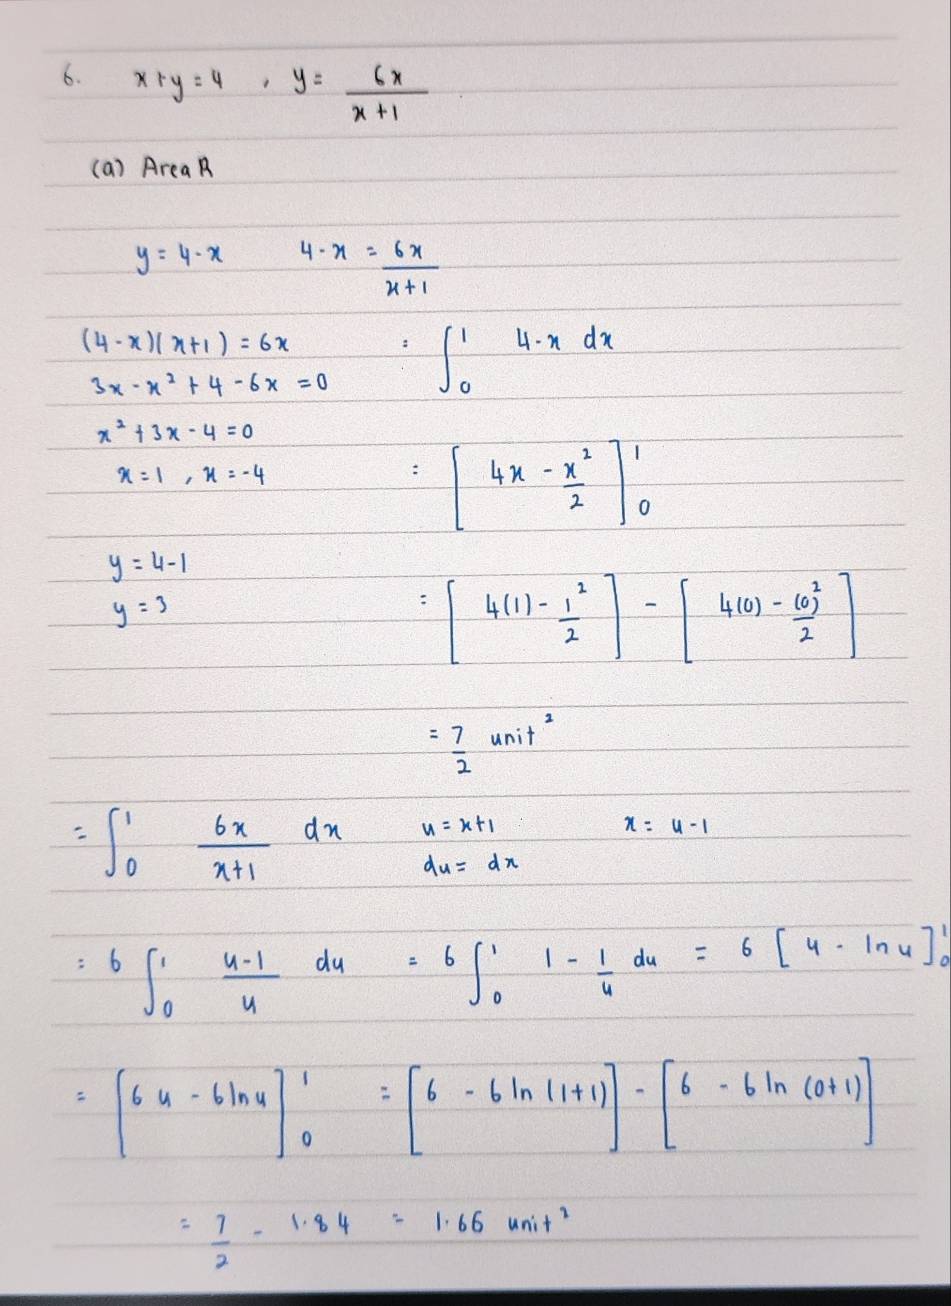 6. x+y=4 , y= 6x/(x+1)
(a) Area R
y = 4-x 4-x = 6x/(x+1)
(4-x)(x+1) = 6x = ∫₀¹ 4-x dx
3x-x²+4-6x=0
x²+3x-4=0
x=1 , x=-4 = [4x - x²/2]₀¹
y=4-1
y=3 = [4(1) - 1²/2] - [4(0) - (0)²/2]
= 7/2 unit²
= ∫₀¹ 6x/(x+1) dx u=x+1 x= u-1
du= dx
= 6 ∫₀¹ (u-1)/u du = 6 ∫₀¹ 1 - 1/u du = 6 [u - ln u]₀¹
= [6u - 6 ln u]₀¹ = [6 - 6 ln (1+1)] - [6 - 6 ln (0+1)]
= 7/2 - 1.84 = 1.66 unit²